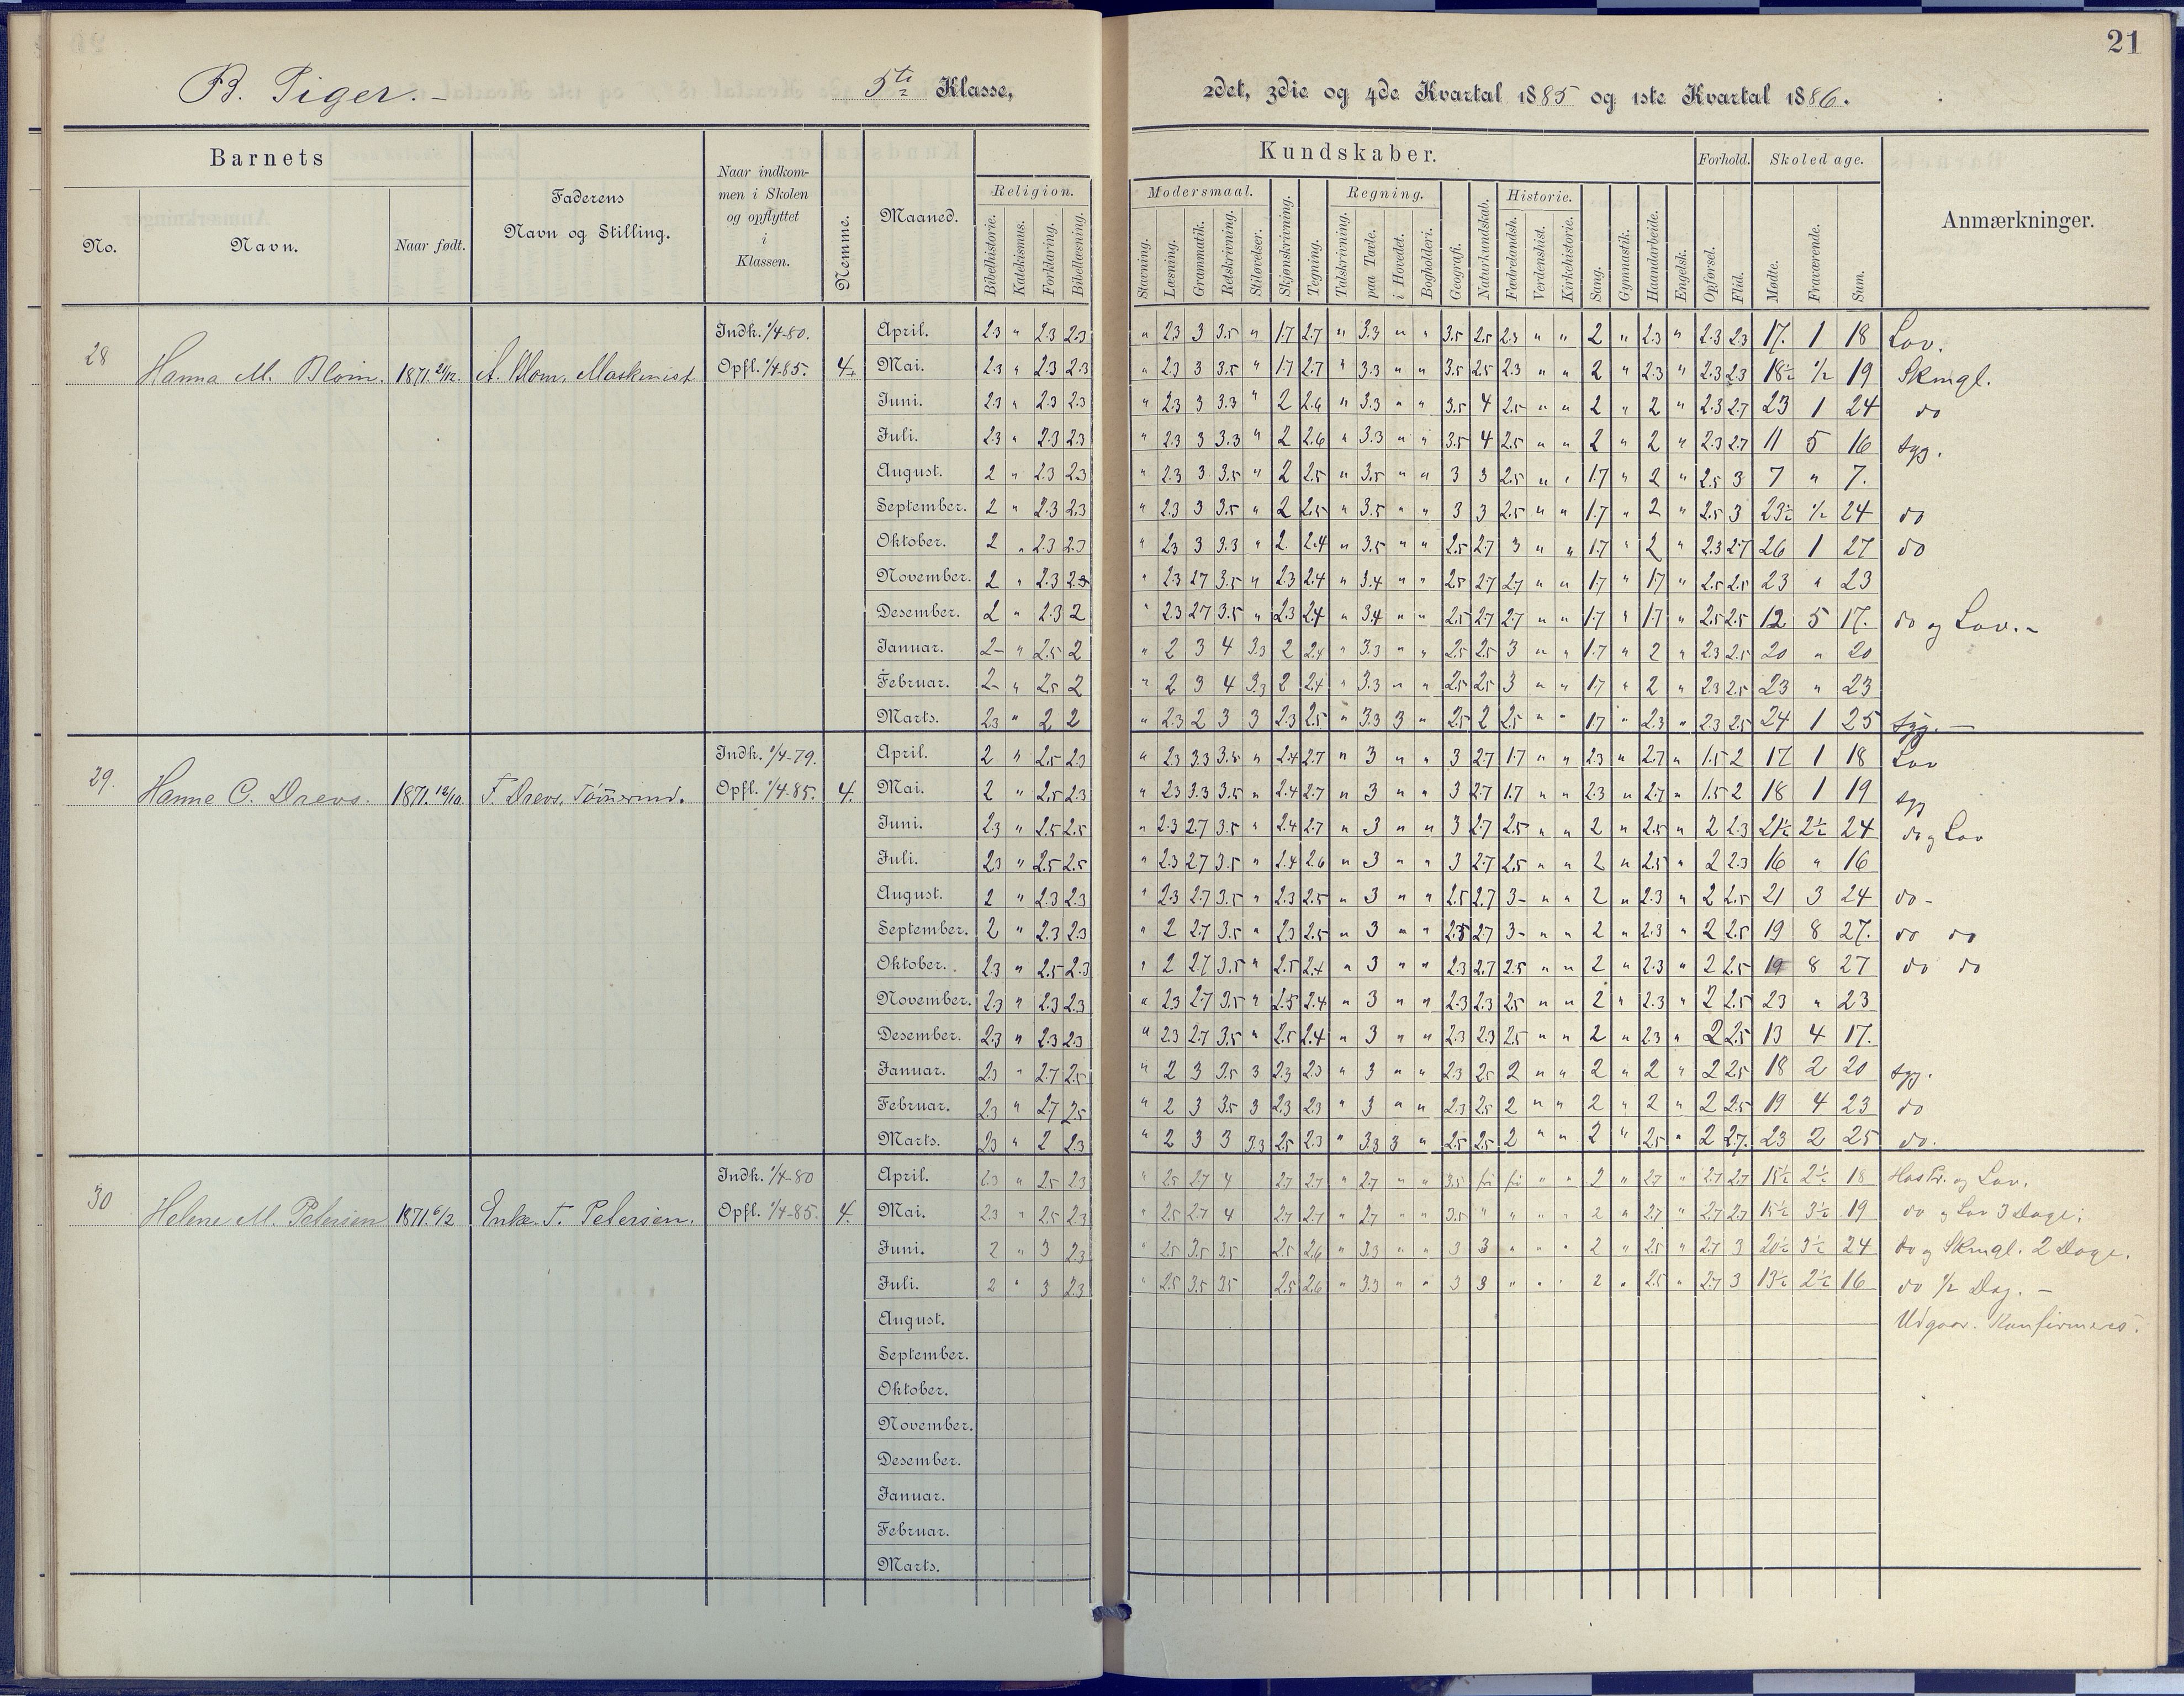 21
B. Piger. –
5te Klasse,
2det, 3die og 4de Kvartal 1885 og 1ste Kvartal 1886.
Barnets
No.
Navn.
Naar født.
Faderens
Navn og Stilling.
Naar indkom-
men i Skolen
og opflyttet
i
Klassen.
Nemme.
Maaned.
Kundskaber.
Religion.
Bibelhistorie.
Katekismus.
Forklaring.
Bibellæsning.
Modersmaal.
Stavning.
Læsning.
Grammatik.
Retskrivning.
Stiløvelser.
Skjønskrivning.
Tegning.
Regning.
Talskrivning.
paa Tavle.
i Hovedet.
Bogholderi.
Geografi.
Naturkundskab.
Historie.
Fædrelandsh.
Verdenshist.
Kirkehistorie.
Sang.
Gymnastik.
Haandarbeide.
Engelsk.
Forhold.
Opførsel.
Flid.
Skoledage.
Mødte.
Fraværende.
Sum.
Anmærkninger.
28 Hanna M. Blom. 1871 21/12. A. Blom, Maskinist
Indk. 1/4-80.
Opfl. 1/4 85. 4.
April. 2.3 " 2.3 2.3 " 2.3 3 3.5 " 1.7 2.7 " 3.3 " " 3.5 2.5 2.3 " " 2 " 2.3 " 2.3 2.3 17. 1 18 Lov.
Mai. 2.3 " 2.3 2.3 " 2.3 3 3.5 " 1.7 2.7 " 3.3 " " 3.5 2.5 2.3 " " 2 " 2.3 " 2.3 2.3 18½ ½ 19 Skmgl.
Juni. 2.3 " 2.3 2.3 " 2.3 3 3.3 " 2 2.6 " 3.3 " " 3.5 4 2.5 " " 2 " 2 " 2.3 2.7 23 1 24 do
Juli. 2.3 " 2.3 2.3 " 2.3 3 3.3 " 2 2.6 " 3.3 " " 3.5 4 2.5 " " 2 " 2 " 2.3 2.7 11 5 16 syg.
August. 2 " 2.3 2.3 " 2.3 3 3.5 " 2 2.5 " 3.5 " " 3 3 2.5 " " 1.7 " 2 " 2.5 3 7 " 7.
September. 2 " 2.3 2.3 " 2.3 3 3.5 " 2 2.5 " 3.5 " " 3 3 2.5 " " 1.7 " 2 " 2.5 3 23½ ½ 24 do
Oktober. 2 " 2.3 2.3 " 2.3 3 3.3 " 2 2.4 " 3.5 " " 2.5 2.7 3 " " 1.7 " 2 " 2.3 2.7 26 1 27 do
November. 2 " 2.3 2.3 " 2.3 2.7 3.5 " 2.3 2.4 " 3.4 " " 2.5 2.7 2.7 " " 1.7 " 1.7 " 2.5 2.5 23 " 23
Desember. 2 " 2.3 2 " 2.3 2.7 3.5 " 2.3 2.4 " 3.4 " " 2.5 2.7 2.7 " " 1.7 " 1.7 " 2.5 2.5 12 5 17. do og Lov. –
Januar. 2– " 2.5 2 " 2 3 4 3.3 2 2.4 " 3.3 " " 2.5 2.5 3 " " 1.7 " 2 " 2.3 2.5 20 " 20
Februar. 2– " 2.5 2 " 2 3 4 3.3 2 2.4 " 3.3 " " 2.5 2.5 3 " " 1.7 " 2 " 2.3 2.5 23 " 23
Marts. 2.3 " 2 2 " 2.3 2 3 3 2.3 2.5 " 3.3 3 " 2.5 2 2.5 " " 1.7 " 2.3 " 2.3 2.5 24 1 25 syg. –
29. Hanne C. Drevs. 1871. 12/10. F. Drevs, Tømmermd.
Indk. 1/4-79.
Opfl. 1/4-85. 4.
April. 2 " 2.5 2.3 " 2.3 3.3 3.5 " 2.4 2.7 " 3 " " 3 2.7 1.7 " " 2.3 " 2.7 " 1.5 2 17 1 18 Lov
Mai. 2 " 2.5 2.3 " 2.3 3.3 3.5 " 2.4 2.7 " 3 " " 3 2.7 1.7 " " 2.3 " 2.7 " 1.5 2 18 1 19 syg
Juni. 2.3 " 2.5 2.5 " 2.3 2.7 3.5 " 2.4 2.7 " 3 " " 3 2.7 2.5 " " 2 " 2.5 " 2 2.3 21½ 2½ 24 do og Lov
Juli. 2.3 " 2.5 2.5 " 2.3 2.7 3.5 " 2.4 2.6 " 3 " " 3 2.7 2.5 " " 2 " 2.5 " 2 2.3 16 " 16
August. 2 " 2.3 2.3 " 2.3 2.7 3.5 " 2.3 2.5 " 3 " " 2.5 2.7 3– " " 2 " 2.3 " 2 2.5 21 3 24 do –
September. 2 " 2.3 2.3 " 2 2.7 3.5 " 2.3 2.5 " 3 " " 2.5 2.7 3– " " 2 " 2.3 " 2 2.5 19 8 27. do do
Oktober. 2.3 " 2.5 2.3 " 2 2.7 3.5 " 2.5 2.4 " 3 " " 2.3 2.7 2.5 " " 2 " 2.3 " 2 2.5 19 8 27 do do
November. 2.3 " 2.3 2.3 " 2.3 2.7 3.5 " 2.5 2.4 " 3 " " 2.3 2.3 2.5 " " 2 " 2.3 " 2 2.5 23 " 23
Desember. 2.3 " 2.3 2.3 " 2.3 2.7 3.5 " 2.5 2.4 " 3 " " 2.3 2.3 2.5 " " 2 " 2.3 " 2 2.5 13 4 17.
Januar. 2.3 " 2.7 2.5 " 2 3 3.5 3 2.3 2.3 " 3 " " 2.3 2.5 2 " " 2 " 2 " 2 2.5 18 2 20 syg.
Februar. 2.3 " 2.7 2.5 " 2 3 3.5 3 2.3 2.3 " 3 " " 2.3 2.5 2 " " 2 " 2 " 2 2.5 19 4 23 do
Marts. 2.3 " 2 2.3 " 2 3 3 3.3 2.5 2.3 " 3.3 3 " 2.5 2.5 2 " " 2 " 2.5 " 2 2.7. 23 2 25 do.
30 Helene M. Petersen 1871. 6/2 Enke T. Petersen.
Indk. 1/4-80
Opfl. 1/4-85. 4.
April. 2.3 " 2.5 2.3 " 2.5 2.7 4 2.7 2.7 " 2.7 " " 3.5 fri fri " " 2 " 2.7 " 2.7 2.7 15½ 2½ 18 og Lov.
Mai. 2.3 " 2.5 2.3 " 2.5 2.7 4 2.7 2.7 " 2.7 " " 3.5 " " " " 2 " 2.7 " 2.7 2.7 15½ 3½ 19 do og Lov 3 Dage;
Juni. 2 " 3 2.3 " 2.5 3.5 3.5 2.5 2.6 " 3.3 " " 3 3 " " " 2 " 2.5 " 2.7 3 20½ 3½ 24 do og Skmgl. 2 Dage.
Juli. 2 " 3 2.3 " 2.5 3.5 3.5 2.5 2.6 " 3.3 " " 3 3 " " " 2 " 2.5 " 2.7 3 13½ 2½ 16 do ½ Dag. –
August. Udgaar. Konfirmeres.
September.
Oktober.
November.
Desember.
Januar.
Februar.
Marts.